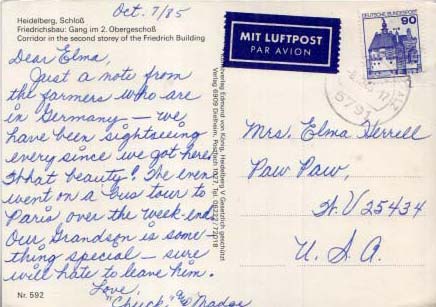 Oct. 7/85
Heidelberg, Schloß
Friedrichsbau: Gang im 2. Obergeschoß
Corridor in the second storey of the Friedrich Building
MIT LUFTPOST
PAR AVION
DEUTSCHE BUNDESPOST
90
Dear Elma,
Just a note from
the farmers who are
in Germany – we
have been sightseeing
every since we got here.
What beauty! The even
went on a bus tour to
Paris, over the week end.
Our Grandson is some-
thing special – sure
will hate to leave him.
Love,
"Chuck" and Madge
Mrs. Elma Herrell
Paw Paw,
W.V 25434
U.S.A.
Nr. 592